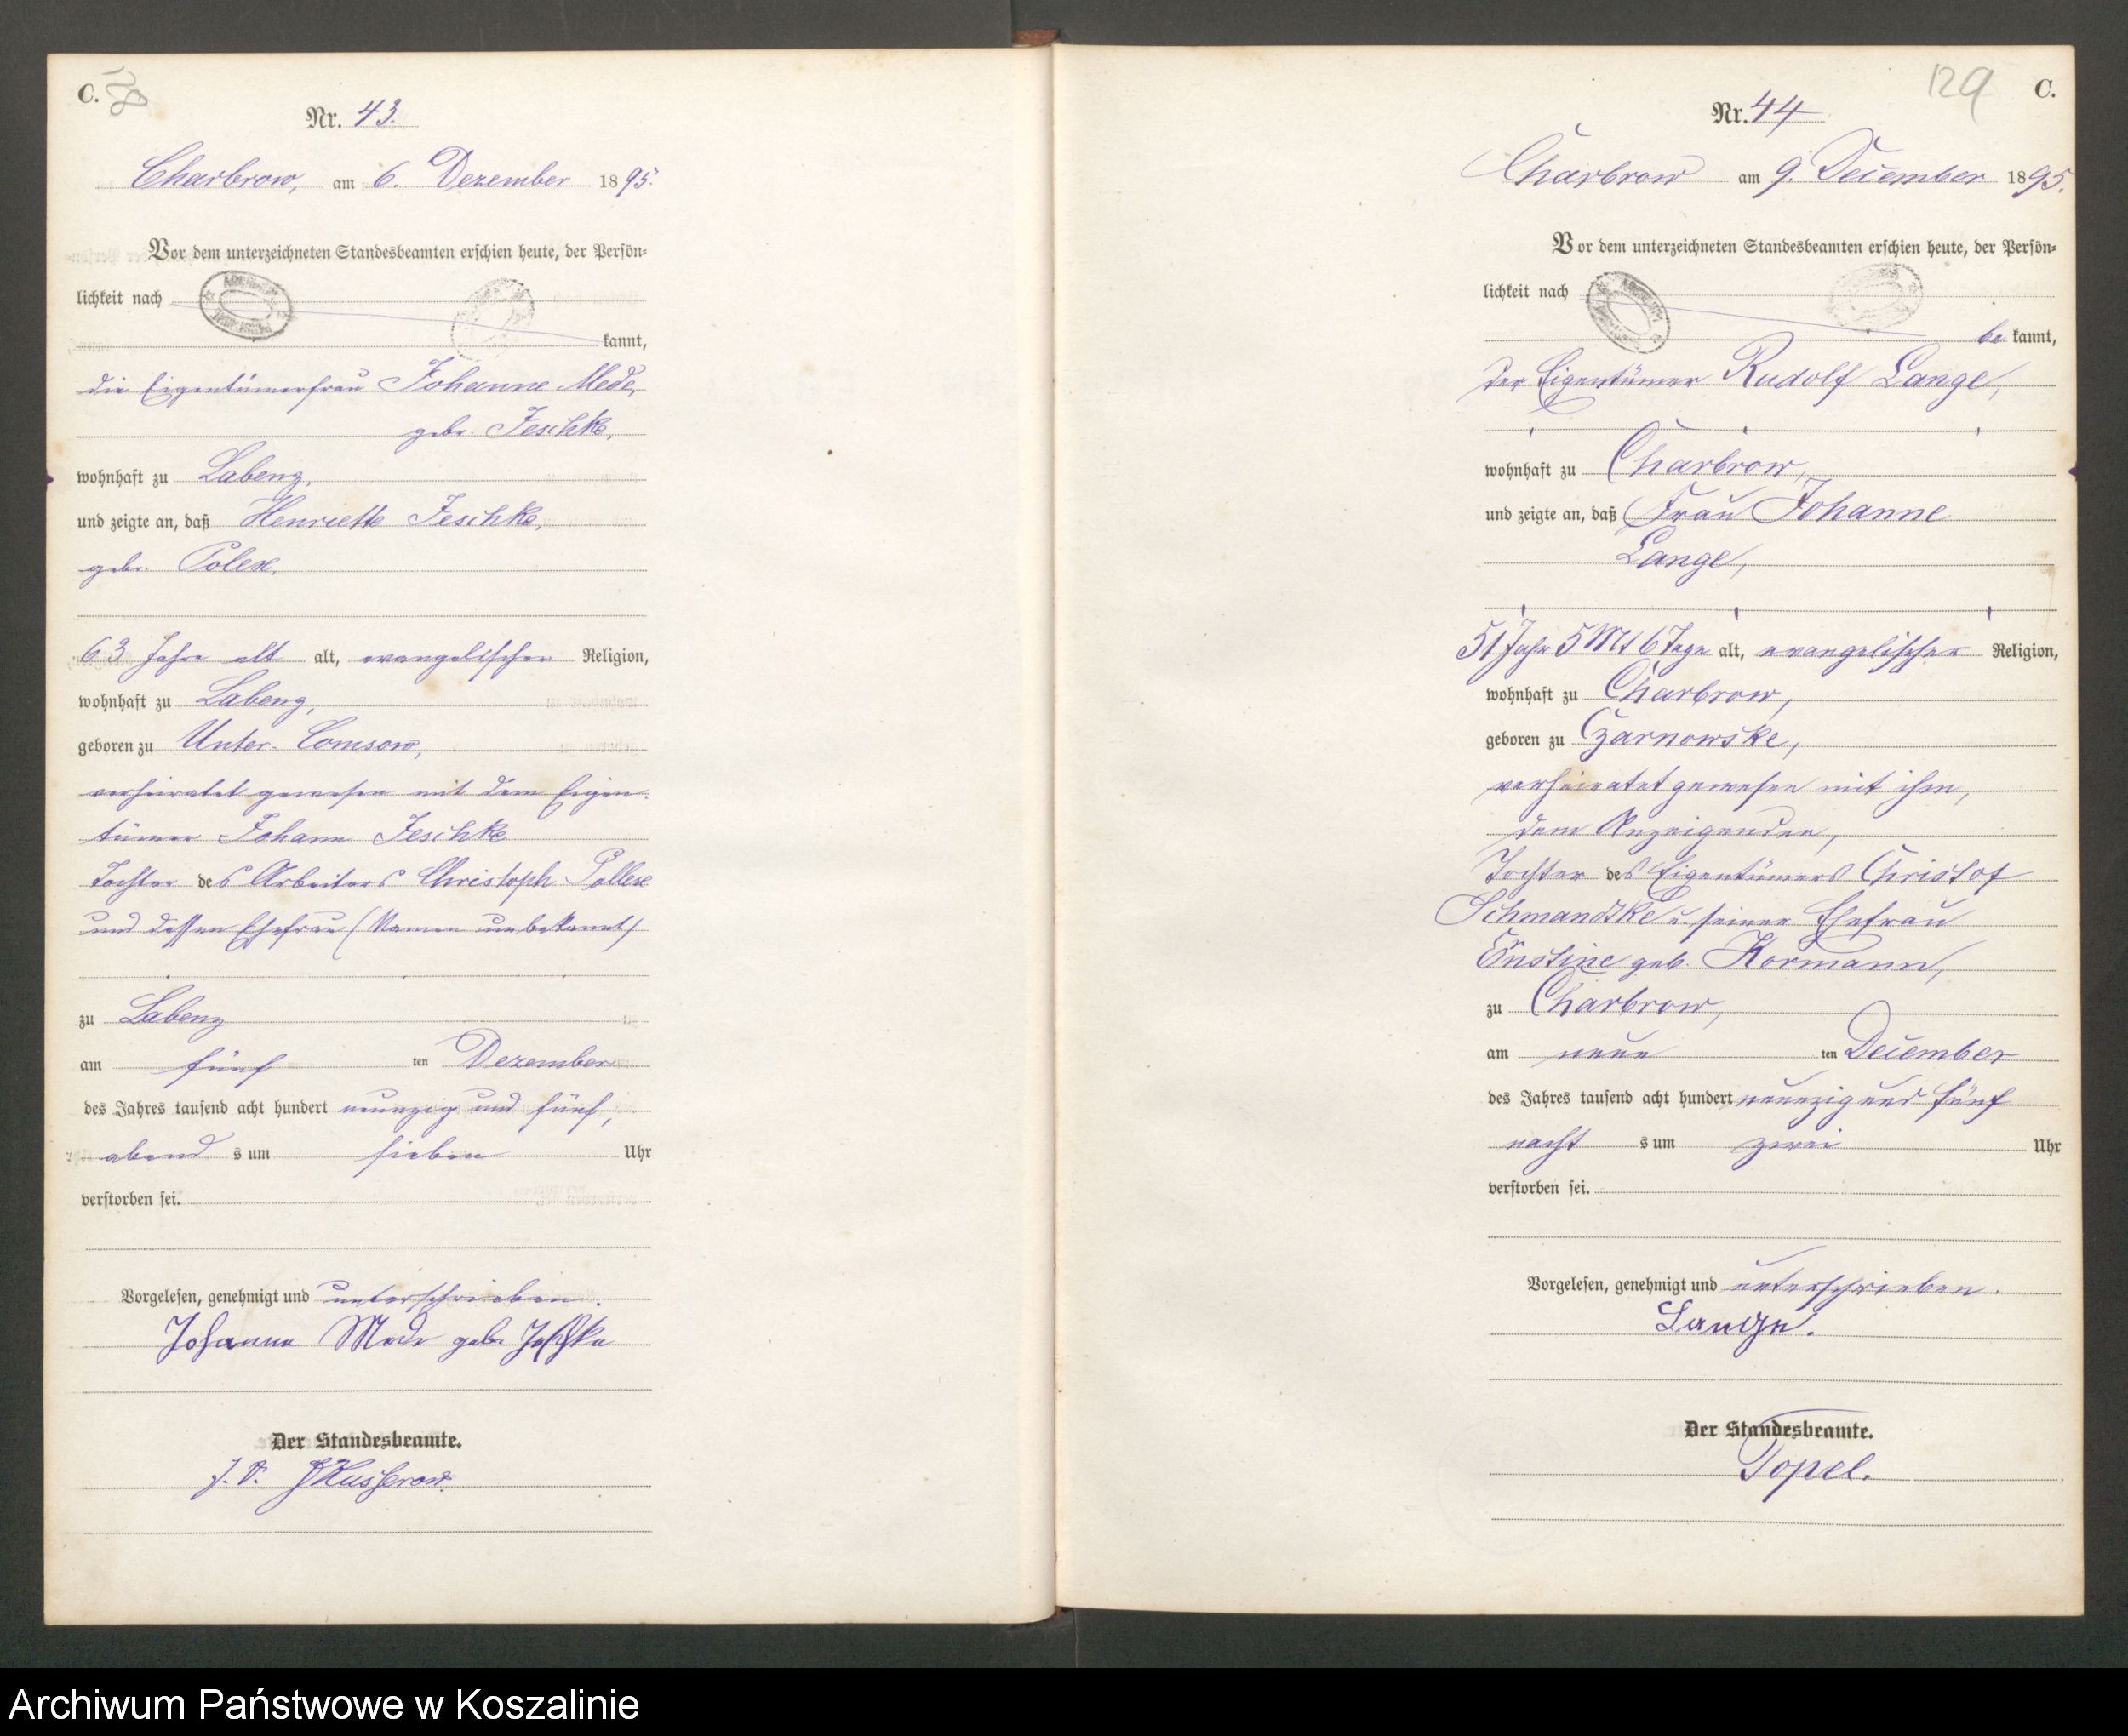 C.
Nr. 43.
Charbrow, am 6. Dezember 1895.
Vor dem unterzeichneten Standesbeamten erschien heute, der Persön-
lichkeit nach
kannt,
die Eigentümerfrau Johanne Mede,
geb. Jeschke,
wohnhaft zu Labenz,
und zeigte an, daß Henriette Jeschke,
geb. Polex,
63 Jahre alt alt, evangelischer Religion,
wohnhaft zu Labenz,
geboren zu Unter-Comsow,
verheiratet gewesen mit dem Eigen-
tümer Johann Jeschke
Tochter des Arbeiters Christoph Pollex
und dessen Ehefrau (Namen unbekannt)
zu Labenz
am fünf ten Dezember
des Jahres tausend acht hundert neunzig und fünf,
abend s um sieben Uhr
verstorben sei.
Vorgelesen, genehmigt und unterschrieben.
Johanna Mede geb. Jeschke
Der Standesbeamte.
J. V.
129
C.
Nr. 44
Charbrow am 9. December 1895.
Vor dem unterzeichneten Standesbeamten erschien heute, der Persön-
lichkeit nach
be kannt,
der Eigentümer Rudolf Lange,
wohnhaft zu Charbrow,
und zeigte an, daß Frau Johanne
Lange,
51 Jahr 5 Mt 6 Tage alt, evangelischer Religion,
wohnhaft zu Charbrow,
geboren zu Czarnowske,
verheiratet gewesen mit ihm,
dem Anzeigenden,
Tochter des Eigentümers Christof
Schmandtke u. seiner Ehefrau
geb. Kormann,
zu Charbrow,
am neun ten December
des Jahres tausend acht hundert neunzig und fünf
nacht s um zwei Uhr
verstorben sei.
Vorgelesen, genehmigt und unterschrieben.
Lange.
Der Standesbeamte.
Topel.
Archiwum Państwowe w Koszalinie